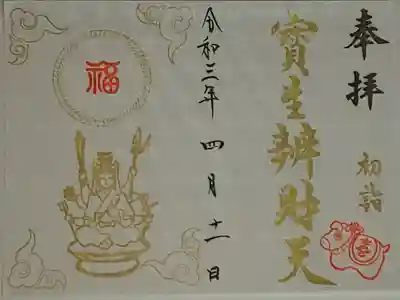 奉拝
初詣
寳生辨財天
令和三年 四月十一日
福